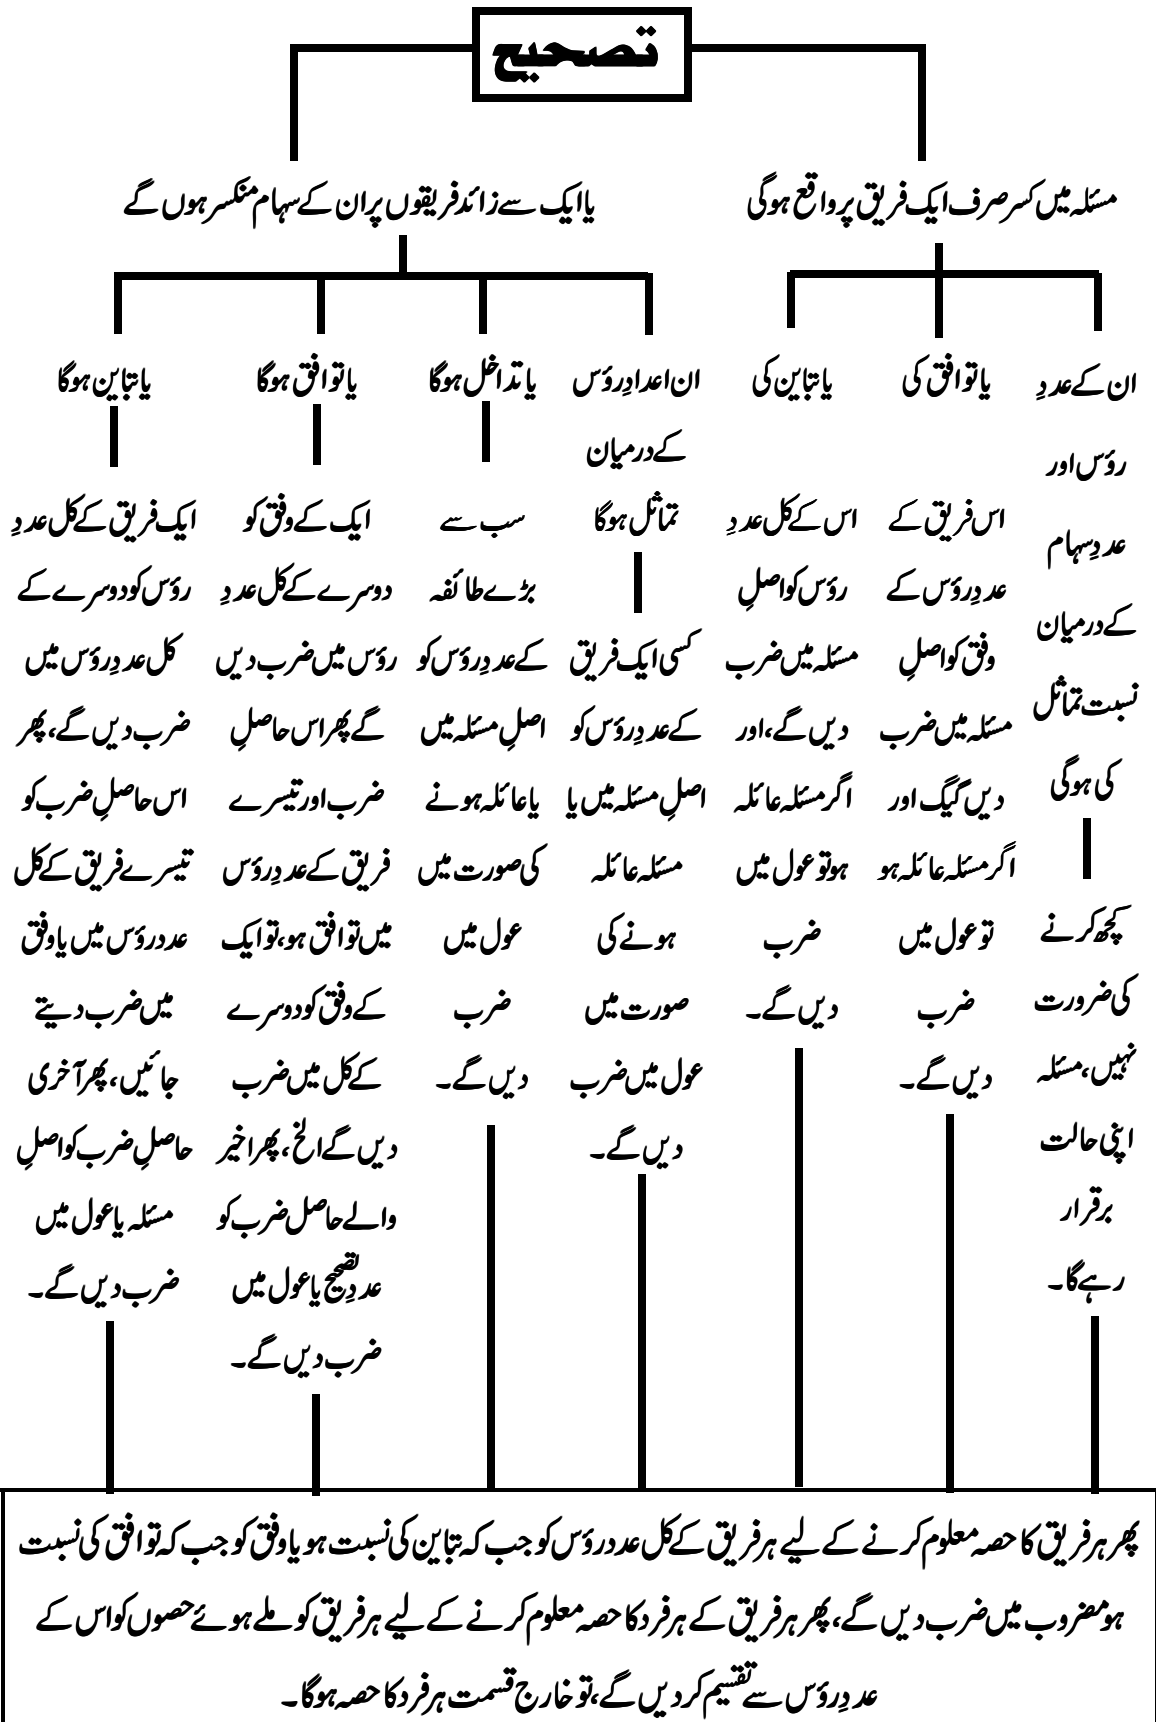 تصحیح
مسئلہ میں کسر صرف ایک فریق پر واقع ہوگی
ان کے عددِ
رؤس اور
عددِ سہام
کے درمیان
نسبت تماثل
کی ہوگی
کچھ کرنے
کی ضرورت
نہیں، مسئلہ
اپنی حالت
برقرار
رہے گا۔
یا توافق کی
اس فریق کے
عددِ رؤس کے
وفق کو اصلِ
مسئلہ میں ضرب
دیں گیگ اور
اگر مسئلہ عائلہ ہو
تو عول میں
ضرب
دیں گے۔
یا تباین کی
اس کے کل عددِ
رؤس کو اصلِ
مسئلہ میں ضرب
دیں گے، اور
اگر مسئلہ عائلہ
ہو تو عول میں
ضرب
دیں گے۔
یا ایک سے زائد فریقوں پر ان کے سہام منکسر ہوں گے
ان اعدادِ رؤس
کے درمیان
تماثل ہوگا
کسی ایک فریق
کے عددِ رؤس کو
اصلِ مسئلہ میں یا
مسئلہ عائلہ
ہونے کی
صورت میں
عول میں ضرب
دیں گے۔
یا تداخل ہوگا
سب سے
بڑے طائفہ
کے عددِ رؤس کو
اصلِ مسئلہ میں
یا عائلہ ہونے
کی صورت میں
عول میں
ضرب
دیں گے۔
یا توافق ہوگا
ایک کے وفق کو
دوسرے کے کل عددِ
رؤس میں ضرب دیں
گے پھر اس حاصلِ
ضرب اور تیسرے
فریق کے عددِ رؤس
میں توافق ہو، تو ایک
کے وفق کو دوسرے
کے کل میں ضرب
دیں گے الخ، پھر اخیر
والے حاصل ضرب کو
عددِ تصحیح یا عول میں
ضرب دیں گے۔
یا تباین ہوگا
ایک فریق کے کل عددِ
رؤس کو دوسرے کے
کل عددِ رؤس میں
ضرب دیں گے، پھر
اس حاصلِ ضرب کو
تیسرے فریق کے کل
عدد رؤس میں یا وفق
میں ضرب دیتے
جائیں، پھر آخری
حاصلِ ضرب کو اصلِ
مسئلہ یا عول میں
ضرب دیں گے۔
پھر ہر فریق کا حصہ معلوم کرنے کے لیے ہر فریق کے کل عدد رؤس کو جب کہ تباین کی نسبت ہو یا وفق کو جب کہ توافق کی نسبت
ہو مضروب میں ضرب دیں گے، پھر ہر فریق کے ہر فرد کا حصہ معلوم کرنے کے لیے ہر فریق کو ملے ہوئے حصوں کو اس کے
عددِ رؤس سے تقسیم کردیں گے، تو خارج قسمت ہر فرد کا حصہ ہوگا۔